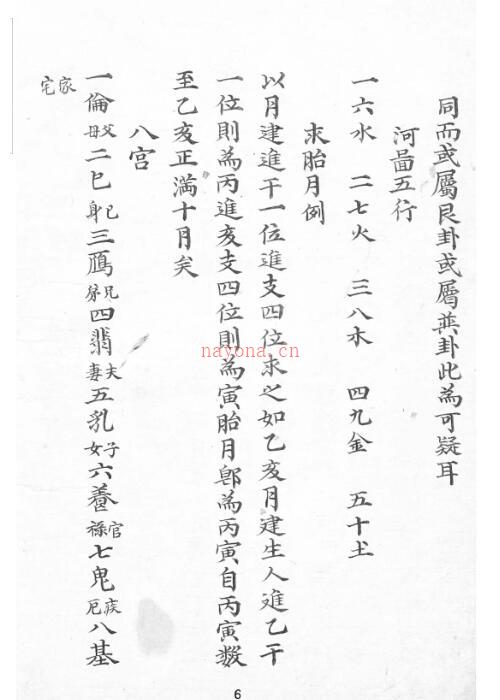 同而或屬艮卦或屬巽卦此為可疑耳
河啚五行
一六水 二七火 三八木 四九金 五十土
求胎月例
以月建進干一位進支四位求之如乙亥月建生人進乙干
一位則為丙進亥支四位則為寅胎月即為丙寅自丙寅数
至乙亥正滿十月矣
八宮
一倫父母二己己身三鴈兄弟四翡夫妻五乳子女六養官祿七鬼疾厄八基
家宅
nayona.cn
6